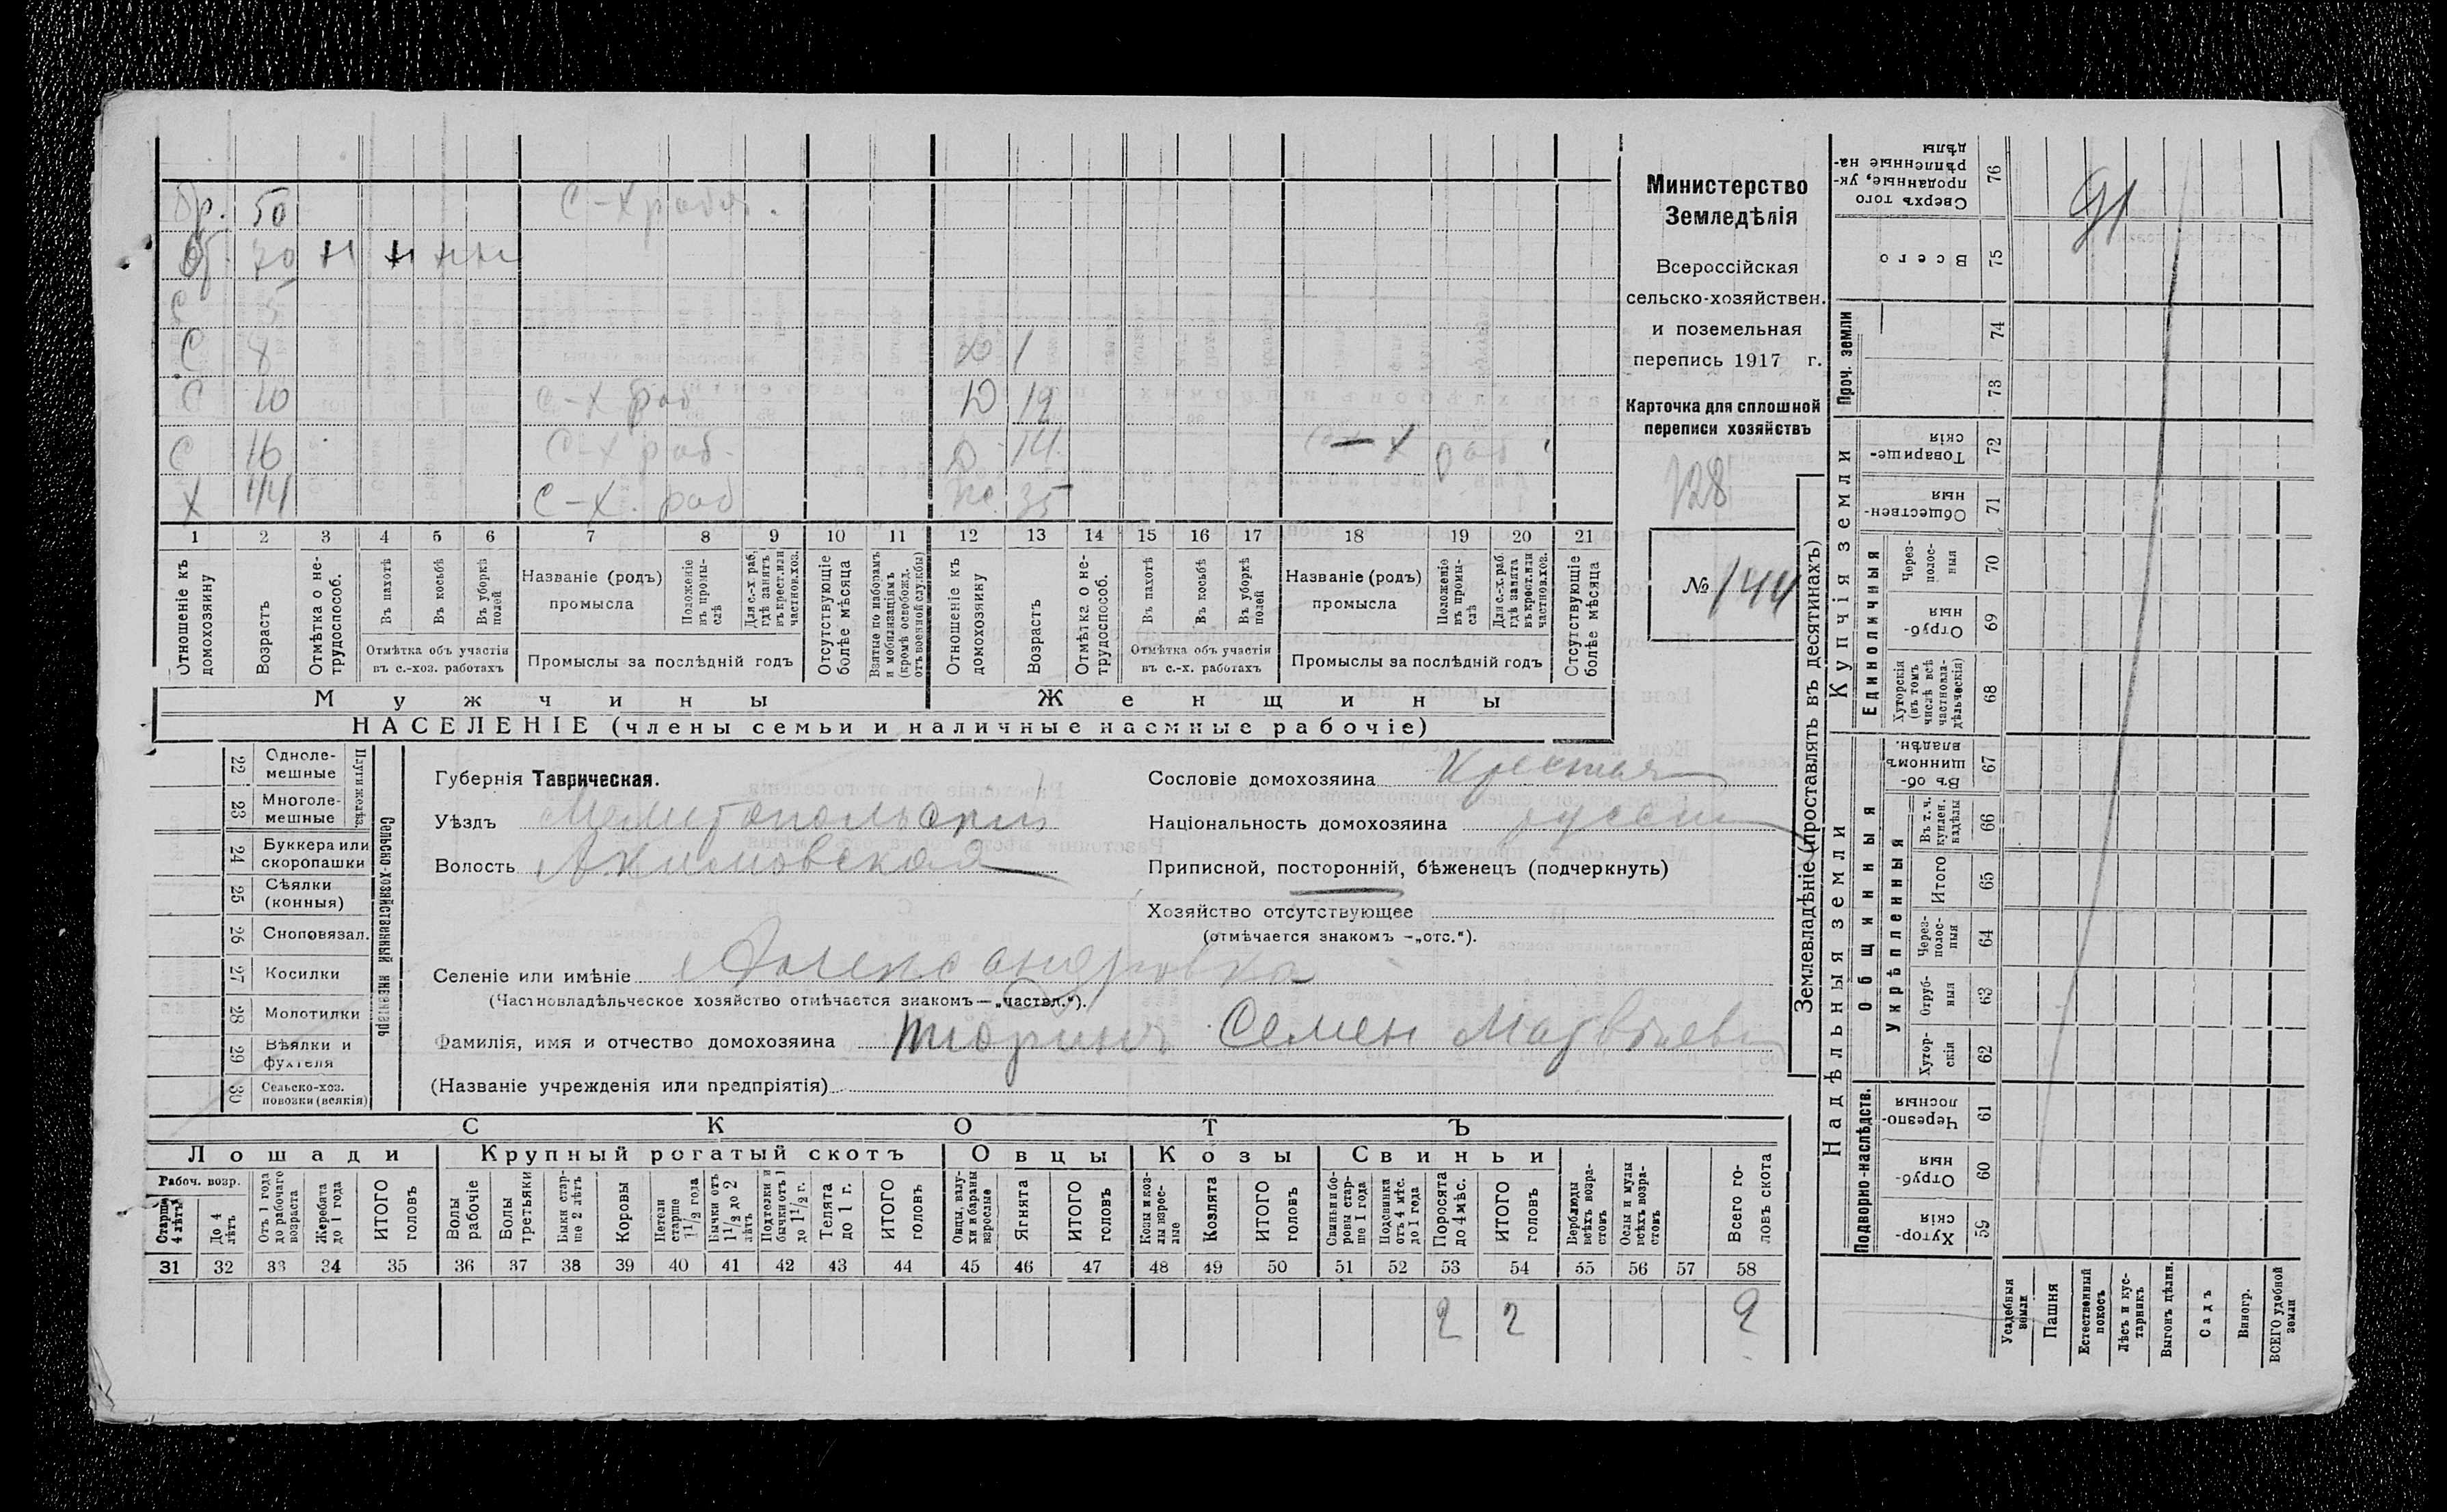 Др. 50 С-Х рабоч.
Об. 70 н н н н
С 3
С 8 Д 1
С 10 С-Х раб Д 12
С 16 С-Х раб. Д 14 С-Х раб
Х 44 С-Х. раб Ж 35
1 2 3 4 5 6 7 8 9 10 11 12 13 14 15 16 17 18 19 20 21
Отношеніе къ домохозяину
Возрастъ
Отмѣтка о не-трудоспособ.
Въ пахотѣ
Въ косьбѣ
Въ уборкѣ полей
Отмѣтка объ участіи въ с.-хоз. работахъ
Названіе (родъ) промысла
Положеніе въ промы-слѣ
Для с.-х. раб. гдѣ занятъ въ крест. или частнов. хоз.
Промыслы за послѣдній годъ
Отсутствующіе болѣе мѣсяца
Взятые по наборамъ и мобилизаціямъ (кромѣ освобожд. отъ военной службы)
Отношеніе къ домохозяину
Возрастъ
Отмѣтка о не-трудоспособ.
Въ пахотѣ
Въ косьбѣ
Въ уборкѣ полей
Отмѣтка объ участіи въ с.-х. работахъ
Названіе (родъ) промысла
Положеніе въ промы-слѣ
Для с.-х. раб. гдѣ занята въ крест. или частнов. хоз.
Промыслы за послѣдній годъ
Отсутствующіе болѣе мѣсяца
Мужчины Женщины
НАСЕЛЕНІЕ (члены семьи и наличные наемные рабочіе)
Министерство
Земледѣлія
Всероссійская
сельско-хозяйствен.
и поземельная
перепись 1917 г.
Карточка для сплошной
переписи хозяйствъ
128
№ 144
22 Одноле-мешные
23 Многоле-мешные
Плуги желѣз.
24 Буккера или скоропашки
25 Сѣялки (конныя)
26 Сноповязал.
27 Косилки
28 Молотилки
29 Вѣялки и фухтеля
30 Сельско-хоз. повозки (всякія)
Сельско-хозяйственный инвентарь
Губернія Таврическая.
Уѣздъ Мелитопольскій
Волость Акимовская
Сословіе домохозяина Крестьян
Національность домохозяина русскій
Приписной, посторонній, бѣженецъ (подчеркнуть)
Хозяйство отсутствующее
(отмѣчается знакомъ —„отс.“).
Селеніе или имѣніе Александровка
(Частновладѣльческое хозяйство отмѣчается знакомъ—„частвл.“).
Фамилія, имя и отчество домохозяина Тюринъ Семен Матвѣевъ
(Названіе учрежденія или предпріятія)
СКОТЪ
Лошади Крупный рогатый скотъ Овцы Козы Свиньи
Рабоч. возр.
Старше 4 лѣтъ
До 4 лѣтъ
Отъ 1 года до рабочаго возраста
Жеребята до 1 года
ИТОГО головъ
Волы рабочіе
Волы третьяки
Быки стар-ше 2 лѣтъ
Коровы
Нетели старше 1 1/2 года
Бычки отъ 1 1/2 до 2 лѣтъ
Подтелки и бычки отъ 1 до 1 1/2 г.
Телята до 1 г.
ИТОГО головъ
Овцы, валу-хи и бараны взрослые
Ягнята
ИТОГО головъ
Козы и коз-лы взрос-лые
Козлята
ИТОГО головъ
Свиньи и бо-ровы стар-ше 1 года
Подсвинки отъ 4 мѣс. до 1 года
Поросята до 4 мѣс.
ИТОГО головъ
Верблюды всѣхъ возра-стовъ
Ослы и мулы всѣхъ возра-стовъ
Всего го-ловъ скота
31 32 33 34 35 36 37 38 39 40 41 42 43 44 45 46 47 48 49 50 51 52 53 54 55 56 57 58
2 2 2
Землевладѣніе (проставлять въ десятинахъ)
Надѣльныя земли Купчія земли Проч. земли
Подворно-наслѣдств. Общинныя Единоличныя
Укрѣпленныя
Сверхъ того проданные, ук-рѣпленные на-дѣлы 76
Всего 75
74
73
Товарище-скія 72
Обществен-ныя 71
Через-полос-ныя 70
Отруб-ныя 69
Хуторскія (въ томъ числѣ всѣ частновла-дѣльческія) 68
Въ об-щинномъ владѣн. 67
Въ т. ч. куплен. надѣлы 66
Итого 65
Через-полос-ныя 64
Отруб-ныя 63
Хутор-скія 62
Черезпо-лосныя 61
Отруб-ныя 60
Хутор-скія 59
Усадебныя земли
Пашня
Естественный покосъ
Лѣсъ и кус-тарникъ
Выгонъ цѣлин.
Садъ
Виногр.
ВСЕГО удобной земли
91